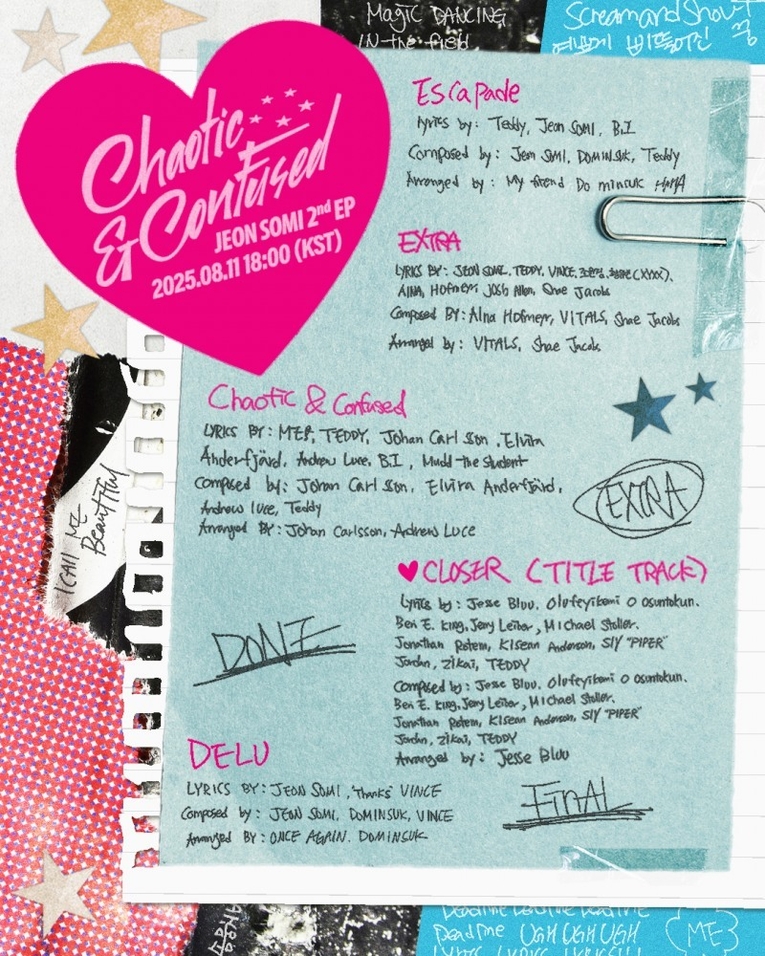 MAGIC DANCING
IN the field
Screamandshout
Chaotic
& Confused
JEON SOMI 2nd EP
2025.08.11 18:00 (KST)
Escapade
lyrics by: Teddy, Jeon SOMI, B.I
Composed by: Jeon SOMI, DOMINSUK, Teddy
Arranged by: My friend Do minsuk HAHA
EXTRA
LYRICS BY: JEON SOMI, TEDDY, VINCE, (XYXX),
AINA, Hofmeyr Josh Allon, Shae Jacobs
Composed BY: Alna Hofmeyr, VITALS, Shae Jacobs
Arranged by: VITALS, Shae Jacobs
Chaotic & Confused
LYRICS BY: TEDDY, Johan Carlsson, Elvira
Anderfjärd, Andrew Luce, B.I, Mudd the student
Composed by: Johan Carlsson, Elvira Anderfjärd,
Andrew Luce, Teddy
Arranged BY: Johan Carlsson, Andrew Luce
EXTRA
I CAll ME
Beautiful
♥ CLOSER (TITLE TRACK)
Lyrics by: Jesse Bluu, Olufeyikemi O osuntokun.
Ben E. King, Jerry Leiber, Michael Stoller.
Jonathan Rotem, Kisean Anderson, Sly "PIPER"
Jordan, Zikai, TEDDY
Composed by: Jesse Bluu, Olufeyikemi O osuntokun.
Ben E. King, Jerry Leiber, Michael Stoller.
Jonathan Rotem, Kisean Anderson, Sly "PIPER"
Jordan, Zikai, TEDDY
Arranged by: Jesse Bluu
DONE
DELU
LYRICS BY: JEON SOMI, "thanks" VINCE
Composed by: JEON SOMI, DOMINSUK, VINCE
Arranged BY: ONCE AGAIN. DOMINSUK
FinAL
Deadline UGH UGH UGH
ME